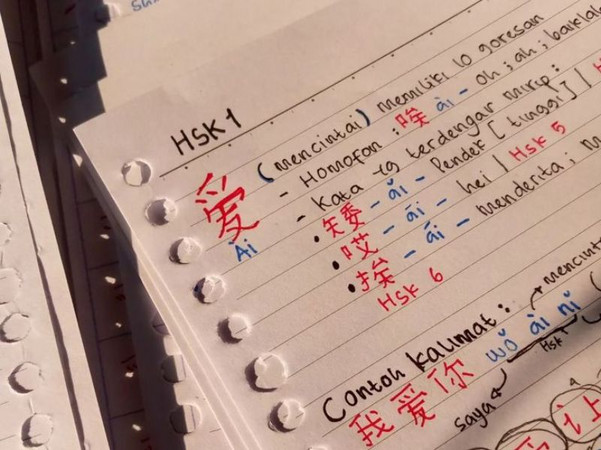 HSK 1
爱 (mencintai) memiliki 10 goresan
Ài
- Homofon : 唉 ài - oh ; ah ; baiklah
- Kata yg terdengar mirip :
• 矮 - ǎi - Pendek [tinggi] |
• 哎 - āi - hei | HSK 5
• 挨 - ái - menderita ;
HSK 6
Contoh kalimat :
我爱你 wǒ ài nǐ
saya